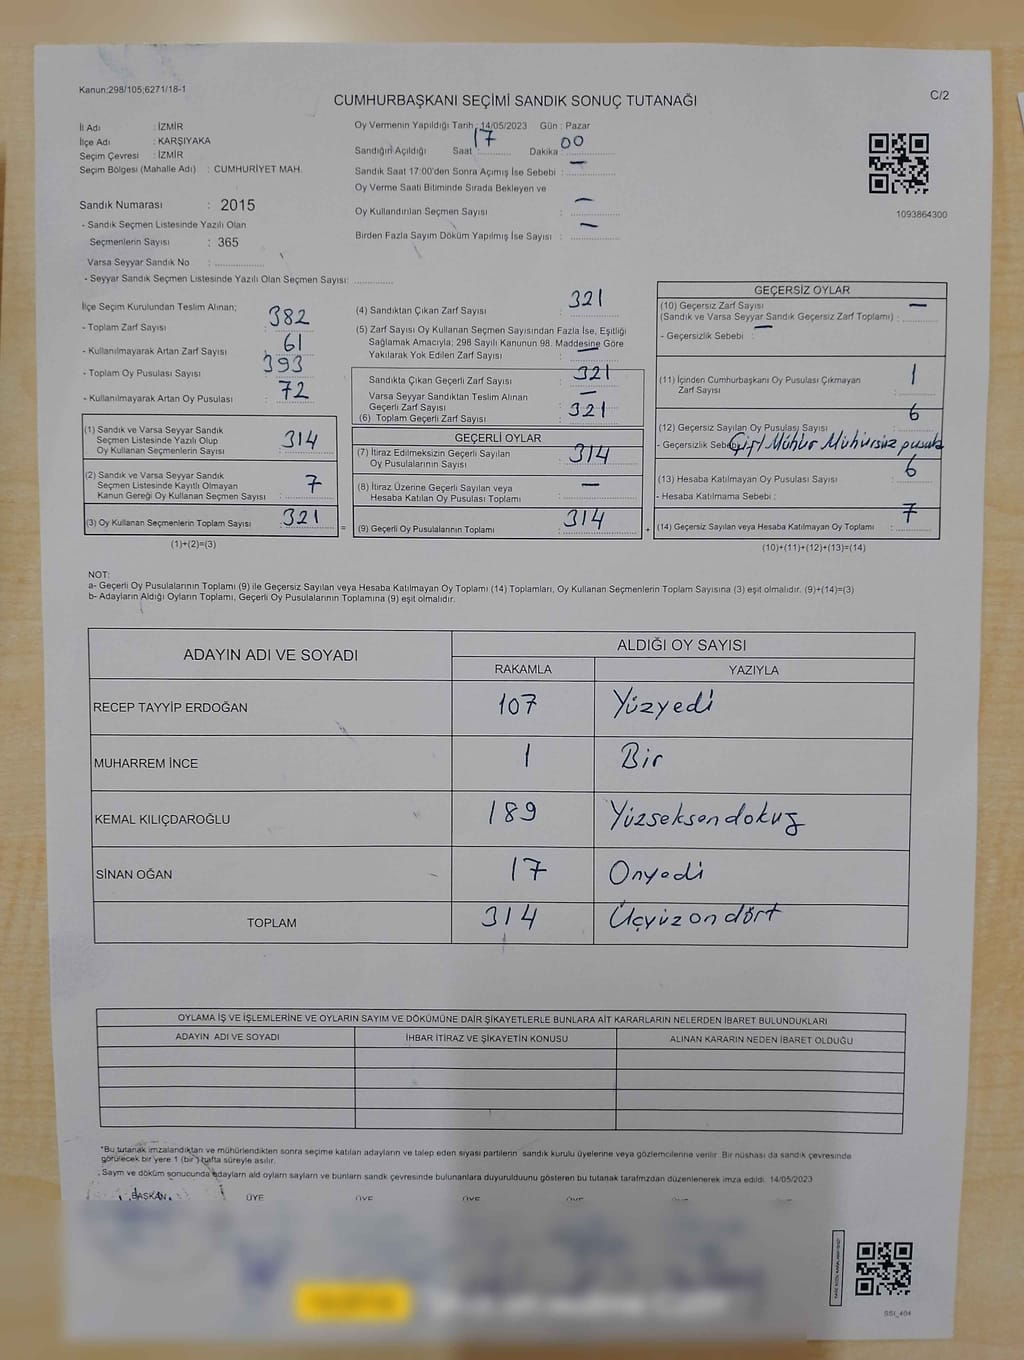 Kanun;298/105;6271/18-1
CUMHURBAŞKANI SEÇİMİ SANDIK SONUÇ TUTANAĞI
C/2
İl Adı : İZMİR
İlçe Adı : KARŞIYAKA
Seçim Çevresi : İZMİR
Seçim Bölgesi (Mahalle Adı) : CUMHURİYET MAH.
Sandık Numarası : 2015
- Sandık Seçmen Listesinde Yazılı Olan
Seçmenlerin Sayısı : 365
Varsa Seyyar Sandık No :
- Seyyar Sandık Seçmen Listesinde Yazılı Olan Seçmen Sayısı:
Oy Vermenin Yapıldığı Tarih : 14/05/2023 Gün : Pazar
Sandığın Açıldığı Saat 17 Dakika 00
Sandık Saat 17:00'den Sonra Açımış İse Sebebi : —
Oy Verme Saati Bitiminde Sırada Bekleyen ve
Oy Kullandırılan Seçmen Sayısı : —
Birden Fazla Sayım Döküm Yapılmış İse Sayısı : —
1093864300
İlçe Seçim Kurulundan Teslim Alınan;
- Toplam Zarf Sayısı : 382
- Kullanılmayarak Artan Zarf Sayısı : 61
- Toplam Oy Pusulası Sayısı : 393
- Kullanılmayarak Artan Oy Pusulası : 72
(1) Sandık ve Varsa Seyyar Sandık
Seçmen Listesinde Yazılı Olup
Oy Kullanan Seçmenlerin Sayısı : 314
(2) Sandık ve Varsa Seyyar Sandık
Seçmen Listesinde Kayıtlı Olmayan
Kanun Gereği Oy Kullanan Seçmen Sayısı : 7
(3) Oy Kullanan Seçmenlerin Toplam Sayısı : 321
(1)+(2)=(3)
=
(4) Sandıktan Çıkan Zarf Sayısı : 321
(5) Zarf Sayısı Oy Kullanan Seçmen Sayısından Fazla İse, Eşitliği
Sağlamak Amacıyla; 298 Sayılı Kanunun 98. Maddesine Göre
Yakılarak Yok Edilen Zarf Sayısı : —
Sandıkta Çıkan Geçerli Zarf Sayısı : 321
Varsa Seyyar Sandıktan Teslim Alınan
Geçerli Zarf Sayısı : —
(6) Toplam Geçerli Zarf Sayısı : 321
GEÇERLİ OYLAR
(7) İtiraz Edilmeksizin Geçerli Sayılan
Oy Pusulalarının Sayısı : 314
(8) İtiraz Üzerine Geçerli Sayılan veya
Hesaba Katılan Oy Pusulası Toplamı : —
(9) Geçerli Oy Pusulalarının Toplamı : 314
+
GEÇERSİZ OYLAR
(10) Geçersiz Zarf Sayısı
(Sandık ve Varsa Seyyar Sandık Geçersiz Zarf Toplamı) : —
- Geçersizlik Sebebi : —
(11) İçinden Cumhurbaşkanı Oy Pusulası Çıkmayan
Zarf Sayısı : 1
(12) Geçersiz Sayılan Oy Pusulası Sayısı : 6
- Geçersizlik Sebebi Çift Mühür Mühürsüz pusula
(13) Hesaba Katılmayan Oy Pusulası Sayısı : 6
- Hesaba Katılmama Sebebi :
(14) Geçersiz Sayılan veya Hesaba Katılmayan Oy Toplamı : 7
(10)+(11)+(12)+(13)=(14)
NOT:
a- Geçerli Oy Pusulalarının Toplamı (9) ile Geçersiz Sayılan veya Hesaba Katılmayan Oy Toplamı (14) Toplamları, Oy Kullanan Seçmenlerin Toplam Sayısına (3) eşit olmalıdır. (9)+(14)=(3)
b- Adayların Aldığı Oyların Toplamı, Geçerli Oy Pusulalarının Toplamına (9) eşit olmalıdır.
ADAYIN ADI VE SOYADI
ALDIĞI OY SAYISI
RAKAMLA YAZIYLA
RECEP TAYYİP ERDOĞAN 107 Yüzyedi
MUHARREM İNCE 1 Bir
KEMAL KILIÇDAROĞLU 189 Yüzseksendokuz
SİNAN OĞAN 17 Onyedi
TOPLAM 314 Üçyüzondört
OYLAMA İŞ VE İŞLEMLERİNE VE OYLARIN SAYIM VE DÖKÜMÜNE DAİR ŞİKAYETLERLE BUNLARA AİT KARARLARIN NELERDEN İBARET BULUNDUKLARI
ADAYIN ADI VE SOYADI İHBAR İTİRAZ VE ŞİKAYETİN KONUSU ALINAN KARARIN NEDEN İBARET OLDUĞU
*Bu tutanak imzalandıktan ve mühürlendikten sonra seçime katılan adayların ve talep eden siyasi partilerin sandık kurulu üyelerine veya gözlemcilerine verilir. Bir nüshası da sandık çevresinde
görülecek bir yere 1 (bir ) hafta süreyle asılır.
Sayım ve döküm sonucunda adayların ald oyların sayların ve bunların sandık çevresinde bulunanlara duyurulduunu gösteren bu tutanak tarafmzdan düzenlenerek imza edildi. 14/05/2023
BAŞKAN ÜYE ÜYE ÜYE ÜYE ÜYE
SSI_404